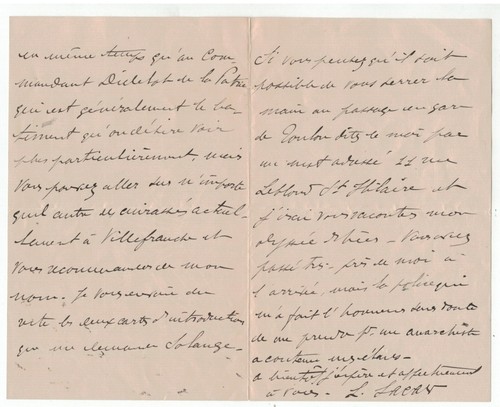 en même temps qu'au Com
mandant Didelot de la Patrie
qui est généralement le ba-
timent qu'on désire voir
plus particulièrement, mais
vous pouvez aller sur n'importe
quel autre des cuirassés actuel-
lement à Villefranche et
vous recommander de mon
nom. Je vous envoie du
reste les deux cartes d'introduction
que me demande Solange.
Si vous pensez qu'il soit
possible de vous serrer la
main au passage en gare
de Toulon dites le moi par
un mot adressé 11 rue
Leblond St Hilaire et
j'irai vous raconter mon
odyssée d'hier. Vous avez
passé très près de moi à
l'arrivée, mais la police qui
m'a fait l'honneur sans doute
de me prendre pr un anarchiste
a contenu mes élans.
a bientôt j'espère et affectueusement
à vous. L.